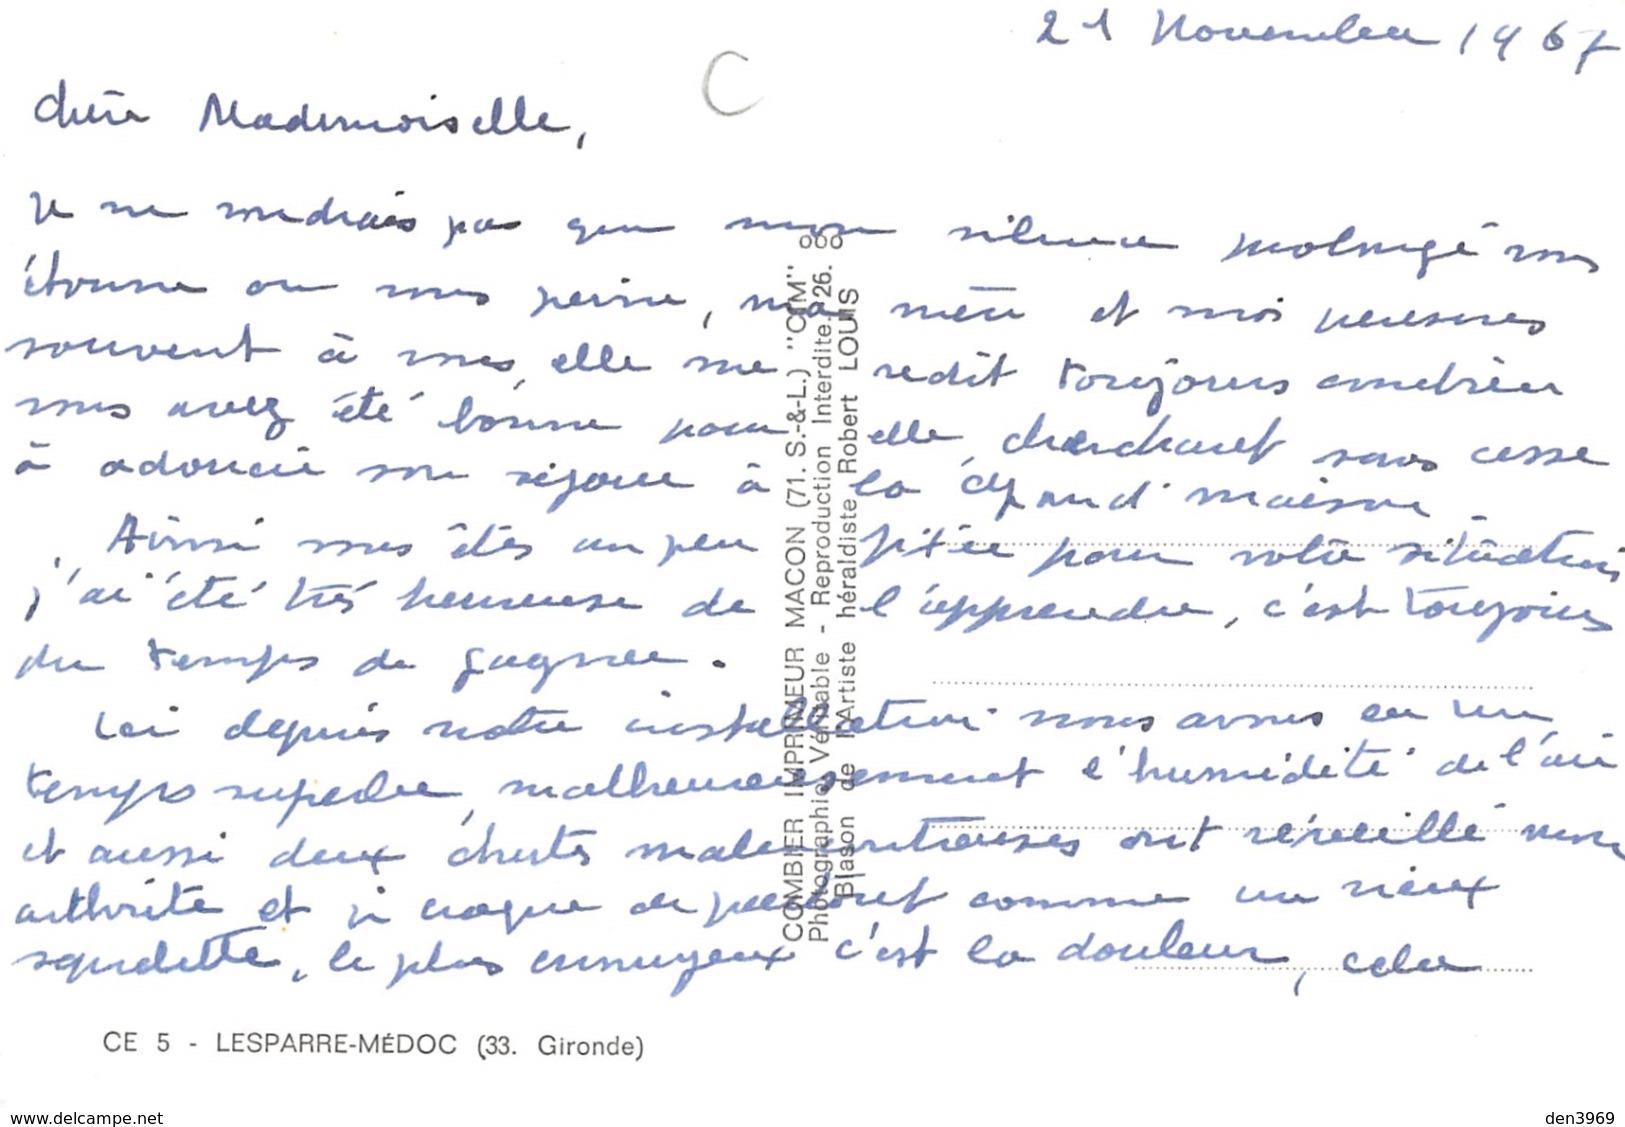 21 Novembre 1967
C
Chère Mademoiselle,
Je ne voudrais pas que mon silence prolongé vous
étonne ou vous peine, ma mère et moi pensons
souvent à vous, elle me redit toujours combien
vous avez été bonne pour elle, cherchant sans cesse
à adoucir son séjour à la grand' maison.
Ainsi vous êtes un peu fixée pour votre situation
j'ai été très heureuse de l'apprendre, c'est toujours
du temps de gagner.
Ici depuis notre installation nous avons eu un
temps superbe, malheureusement l'humidité de l'air
et aussi deux chutes malencontreuses ont réveillé mon
arthrite et je craque de partout comme un vieux
squelette, le plus ennuyeux c'est la douleur, cela
COMBIER IMPRIMEUR MACON (71. S.-&-L.) "CIM"
Photographie Véritable - Reproduction Interdite. 126. ooo
Blason de l'Artiste héraldiste Robert LOUIS
CE 5 - LESPARRE-MÉDOC (33. Gironde)
www.delcampe.net
den3969